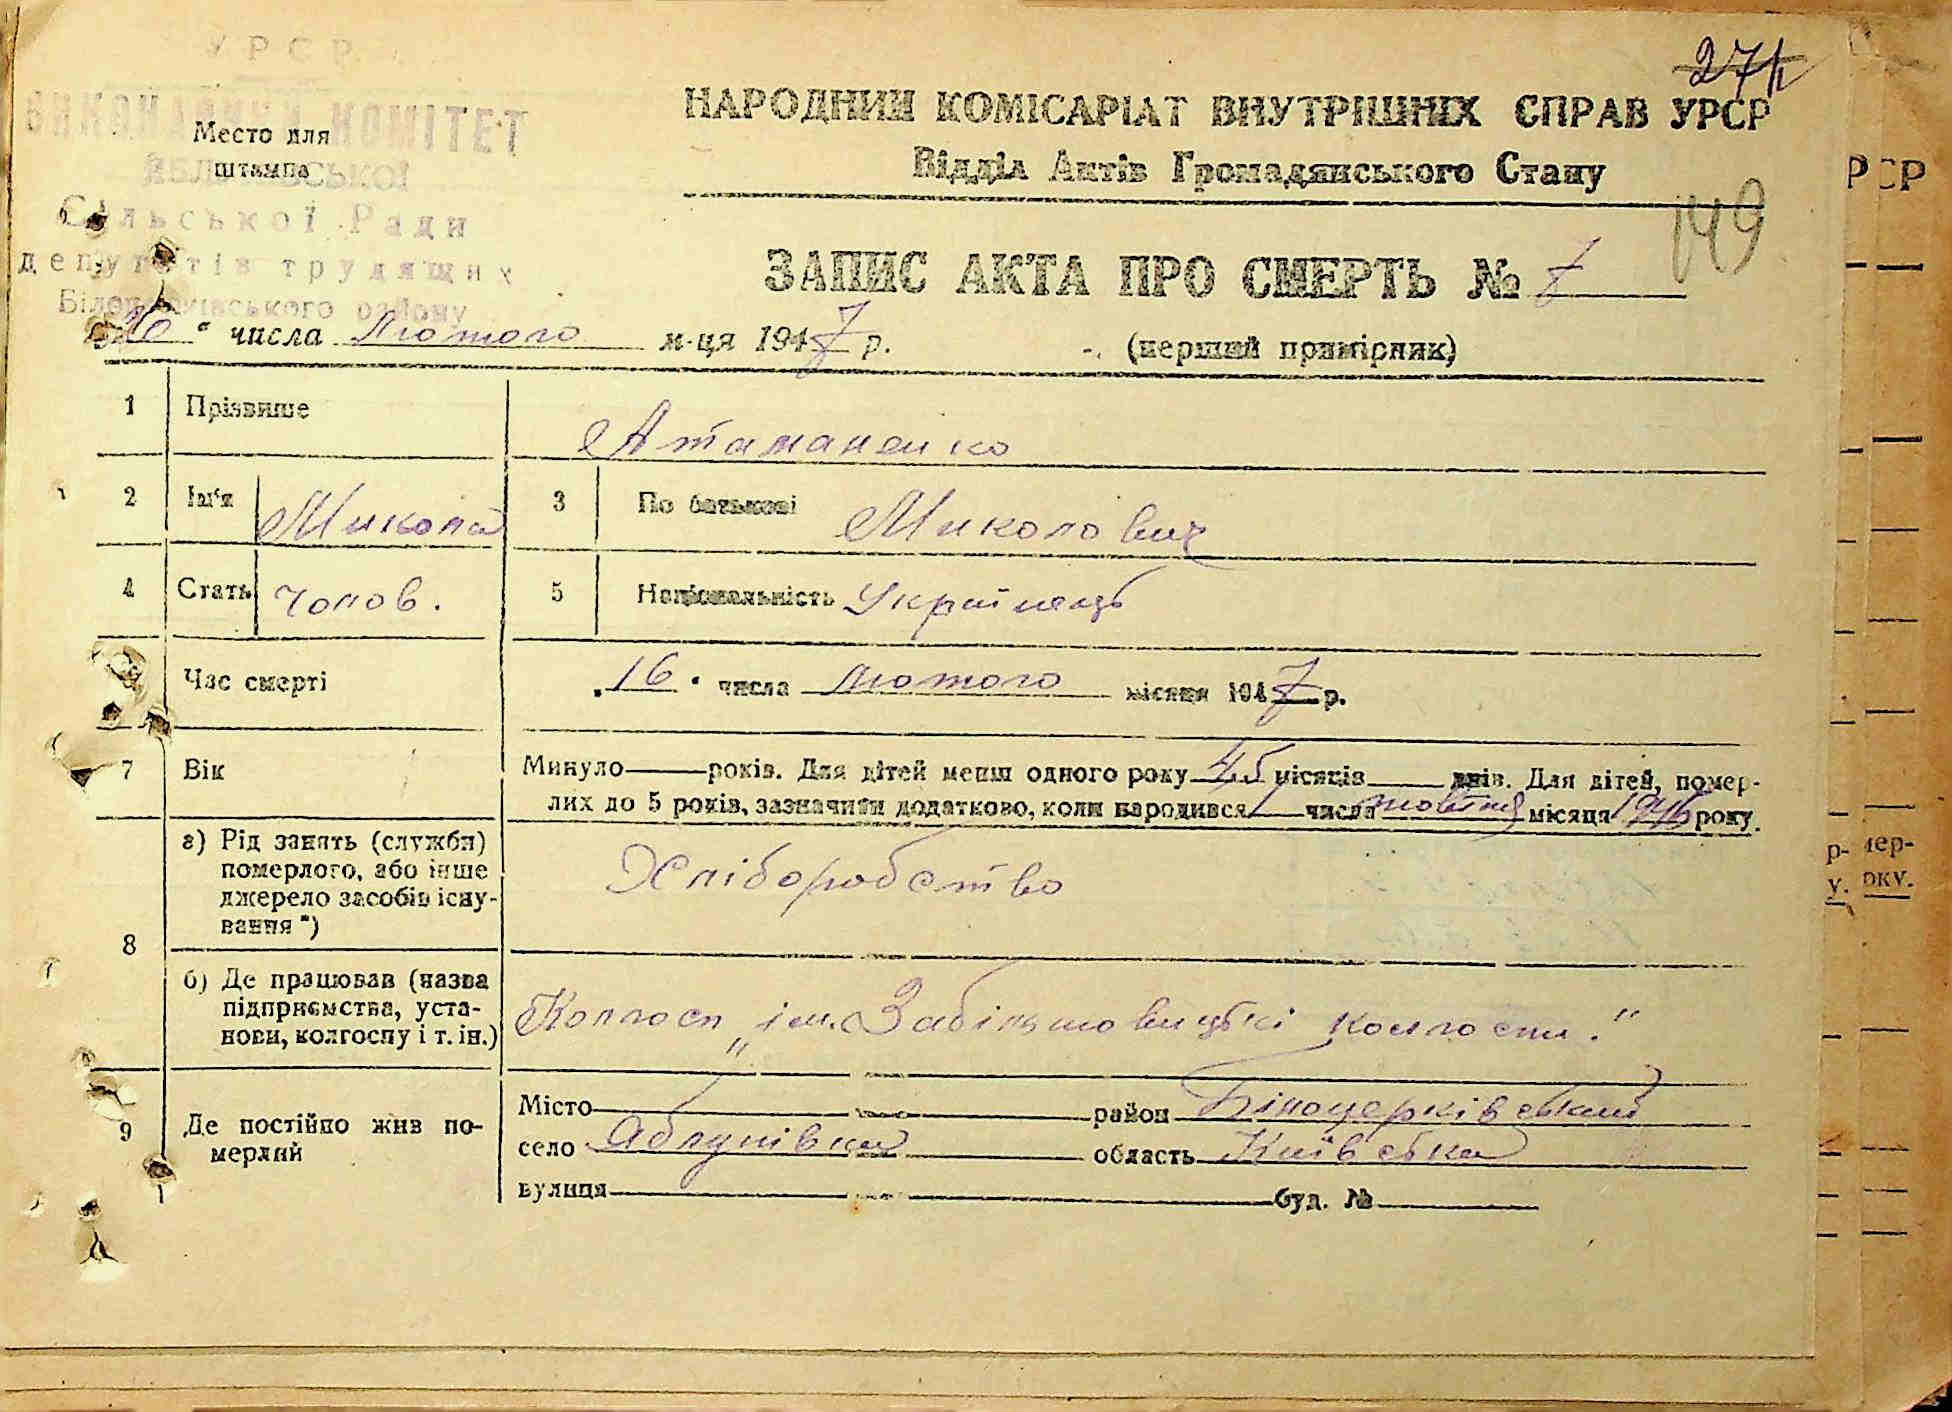 УРСР
ВИКОНАВЧИЙ КОМІТЕТ
Место для
штампа
ЯБЛУНІВСЬКОЇ
Сільської Ради
депутатів трудящих
Білоцерківського району
НАРОДНИЙ КОМІСАРІАТ ВНУТРІШНІХ СПРАВ УРСР
Відділ Актів Громадянського Стану
149
ЗАПИС АКТА ПРО СМЕРТЬ № 7
"16" числа Лютого м-ця 1947 р.
(перший примірник)
1 Прізвище Атаманенко
2 Ім'я Микола 3 По батькові Миколович
4 Стать Чолов. 5 Національність Українець
Час смерті "16" числа Лютого місяця 1947 р.
7 Вік Минуло — років. Для дітей менш одного року 4,5 місяців — днів. Для дітей, помер-
лих до 5 років, зазначити додатково, коли народився числа жовтня місяця 1946 року.
8
а) Рід занять (служби)
померлого, або інше
джерело засобів існу-
вання *)
Хліборобство
б) Де працював (назва
підприємства, уста-
нови, колгоспу і т. ін.)
Колгосп "ім. За більшовицькі колгоспи."
9 Де постійно жив по-
мерлий
Місто район Білоцерківський
село Яблунівка область Київська
вулиця буд. №
РСР
р-
у.
мер-
оку.